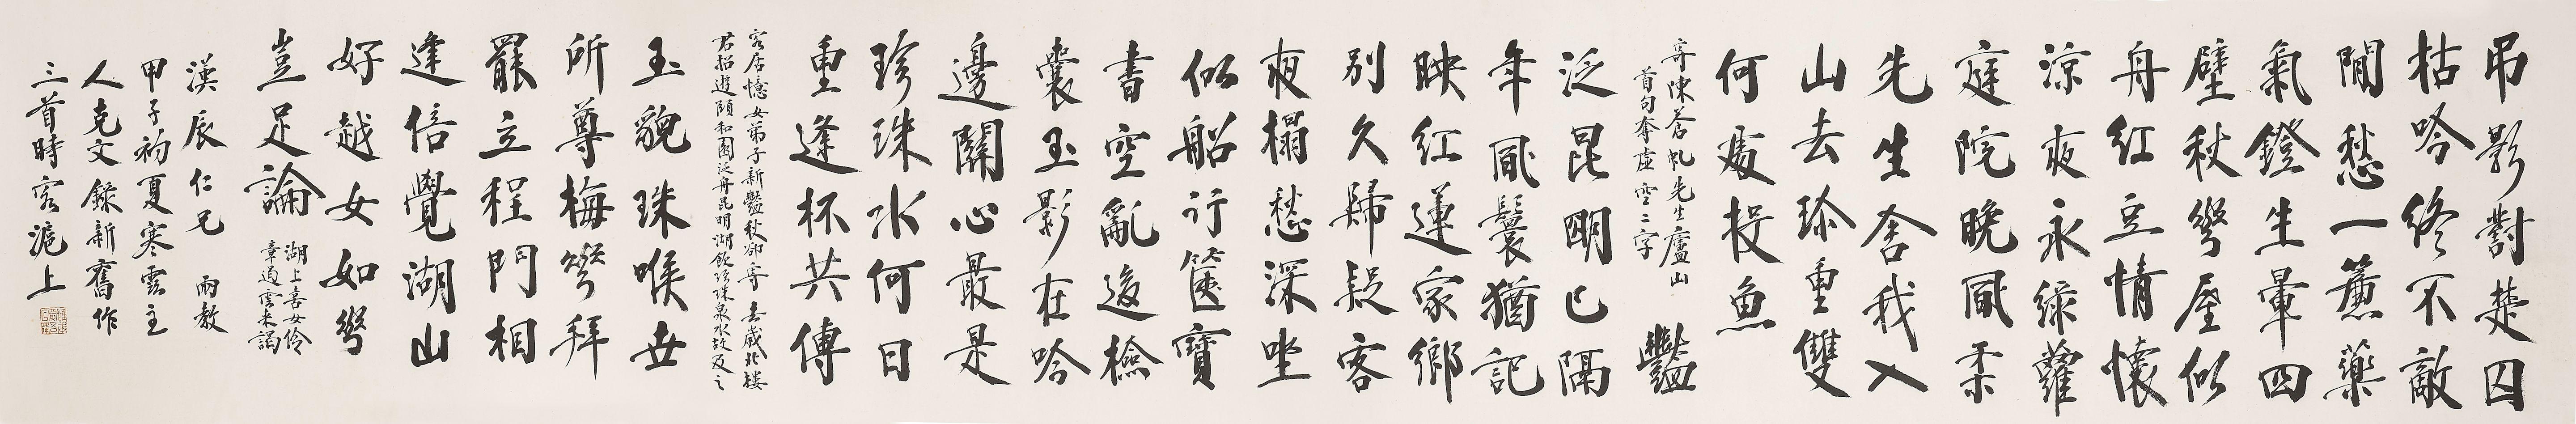 弔影對楚囚
枯吟終不敵
閒愁一簾藥
氣鐙生暈四
壁秋夢壓似
舟紅豆情懷
涼夜永綠蘿
庭院晚風柔
先生舍我入
山去珍重雙
何處投魚
寄陳蒼虬先生廬山
首句奪虛空二字
豔
泛昆明已隔
年風鬟猶記
映紅蓮家鄉
別久歸疑客
夜榻愁深坐
似船行篋寶
書空亂後檢
囊玉影在吟
邊關心最是
珍珠水何日
重逢杯共傳
客居憶女弟子新豔秋卻寄 去歲北樓
君招遊頤和園泛舟昆明湖飲珍珠泉水故及之
玉貌珠喉世
所尊梅夢拜
罷立程門相
逢倍覺湖山
好越女如夢
豈足論
湖上喜女伶
章遏雲來謁
漢辰仁兄 兩教
甲子初夏寒雲主
人克文錄新舊作
三首時客滬上